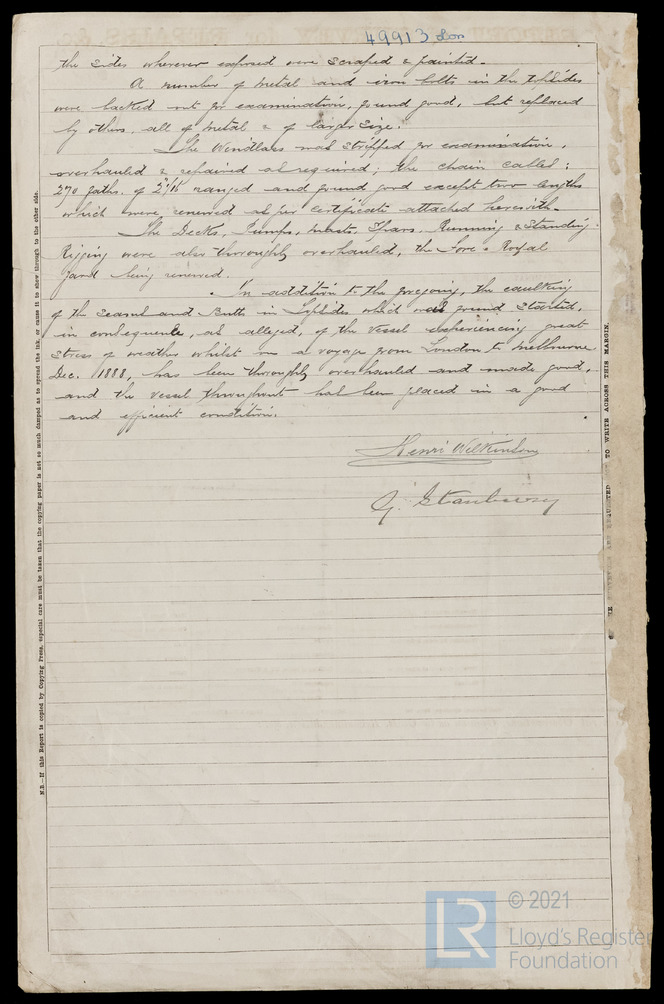 49913 Lon
the sides wherever exposed were scraped & painted.
A number of metal and iron bolts in the topsides
were backed out for examination, found good, but replaced
by others, all of metal & of larger size.
The Windlass was stripped for examination,
overhauled & repaired as required; the chain cables:
270 faths. of 2 1/16 ranged and found good except two lengths
which were renewed as per certificate attached herewith.
The Decks, Pumps, Masts, Spars, Running & Standing
Rigging were also thoroughly overhauled, the Fore Royal
yard being renewed.
In addition to the foregoing, the caulking
of the seams and Butts in Topsides which was found started,
in consequence, as alleged, of the vessel experiencing great
stress of weather whilst on a voyage from London to Melbourne
Dec. 1888, has been thoroughly overhauled and made good,
and the vessel throughout has been placed in a good
and efficient condition.
Henri Wilkinson
G. Stanbury
N.B.—If this Report is copied by Copying Press, especial care must be taken that the copying paper is not so much damped as to spread the ink, or cause it to show through to the other side.
TO WRITE ACROSS THIS MARGIN.
LR
© 2021
Lloyd's Register
Foundation